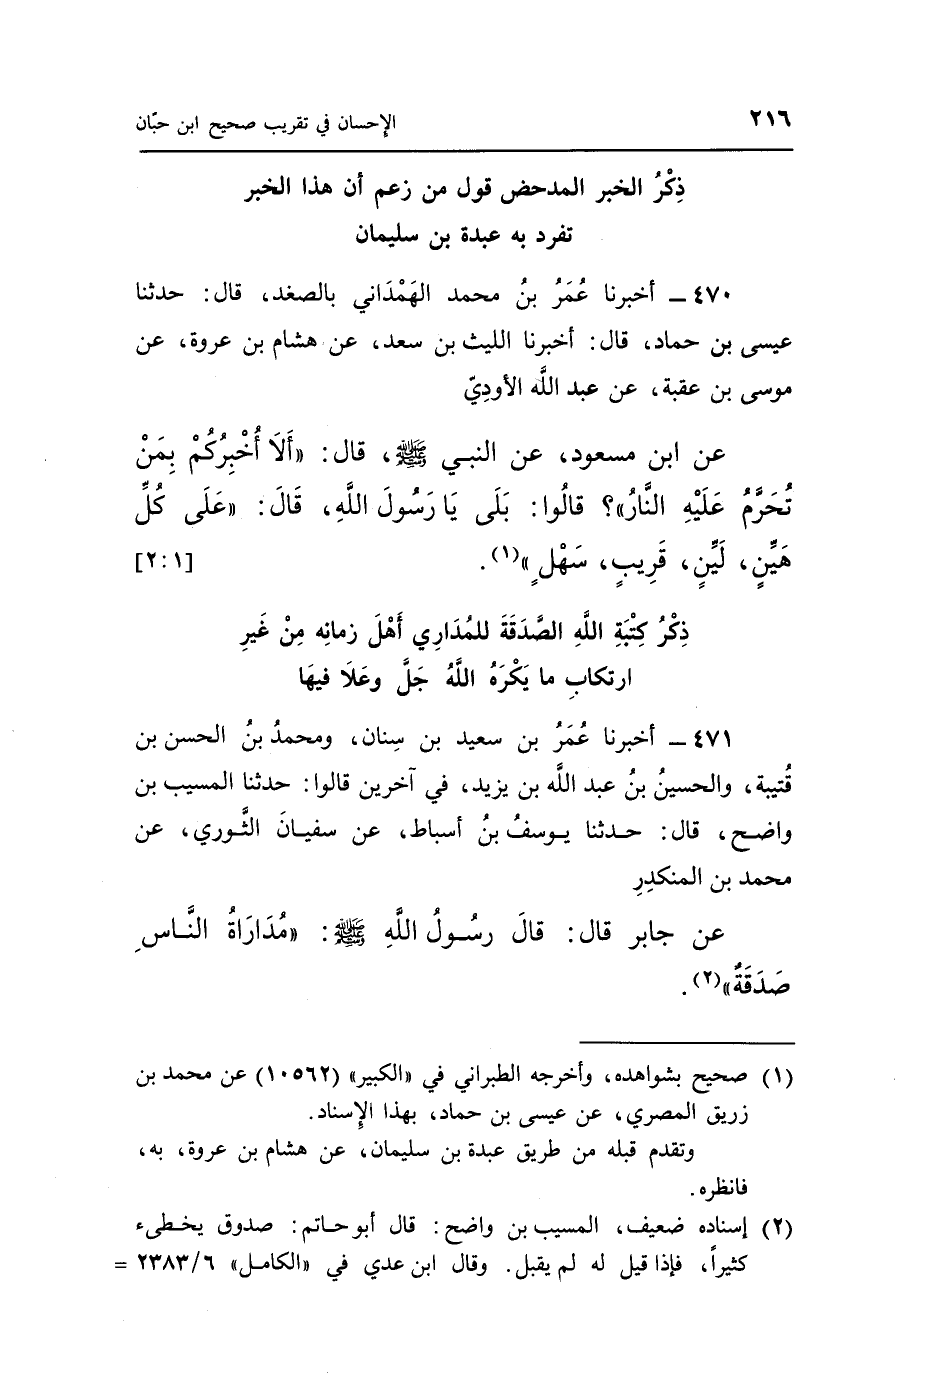 ٢١٦ الإحسان في تقريب صحيح ابن حبّان
ذِكْرُ الخبر المدحض قول من زعم أن هذا الخبر
تفرد به عبدة بن سليمان
٤٧٠ ـ أخبرنا عُمَرُ بنُ محمد الهَمْدَاني بالصغد، قال: حدثنا
عيسى بن حماد، قال: أخبرنا الليث بن سعد، عن هشام بن عروة، عن
موسى بن عقبة، عن عبد اللَّه الأودِيّ
عن ابن مسعود، عن النبي ﷺ، قال: «أَلَا أُخْبِرُكُمْ بِمَنْ
تُحَرَّمُ عَلَيْهِ النَّارُ»؟ قالُوا: بَلَى يَا رَسُولَ اللَّهِ، قَالَ: «عَلَى كُلِّ
هَيِّنٍ، لَيِّنٍ، قَرِيبٍ، سَهْلٍ»(١). [٢:١]
ذِكْرُ كِتْبَةِ اللَّهِ الصَّدَقَةَ للمُدَارِي أَهْلَ زمانِه مِنْ غَيرِ
ارتكابِ ما يَكْرَهُ اللَّهُ جَلَّ وعَلَا فيهَا
٤٧١ ـ أخبرنا عُمَرُ بن سعيد بن سِنان، ومحمدُ بنُ الحسن بن
قُتيبة، والحسينُ بنُ عبد اللَّه بن يزيد، في آخرين قالوا: حدثنا المسيب بن
واضح، قال: حدثنا يوسفُ بنُ أسباط، عن سفيانَ الثَّوري، عن
محمد بن المنكدِرِ
عن جابر قال: قالَ رسُولُ اللَّهِ ﷺ: «مُدَارَاةُ النَّاسِ
صَدَقَةٌ»(٢).
(١) صحيح بشواهده، وأخرجه الطبراني في «الكبير» (١٠٥٦٢) عن محمد بن
زريق المصري، عن عيسى بن حماد، بهذا الإسناد.
وتقدم قبله من طريق عبدة بن سليمان، عن هشام بن عروة، به،
فانظره.
(٢) إسناده ضعيف، المسيب بن واضح: قال أبو حاتم: صدوق يخطىء
كثيراً، فإذا قيل له لم يقبل. وقال ابن عدي في «الكامل» ٢٣٨٣/٦ =